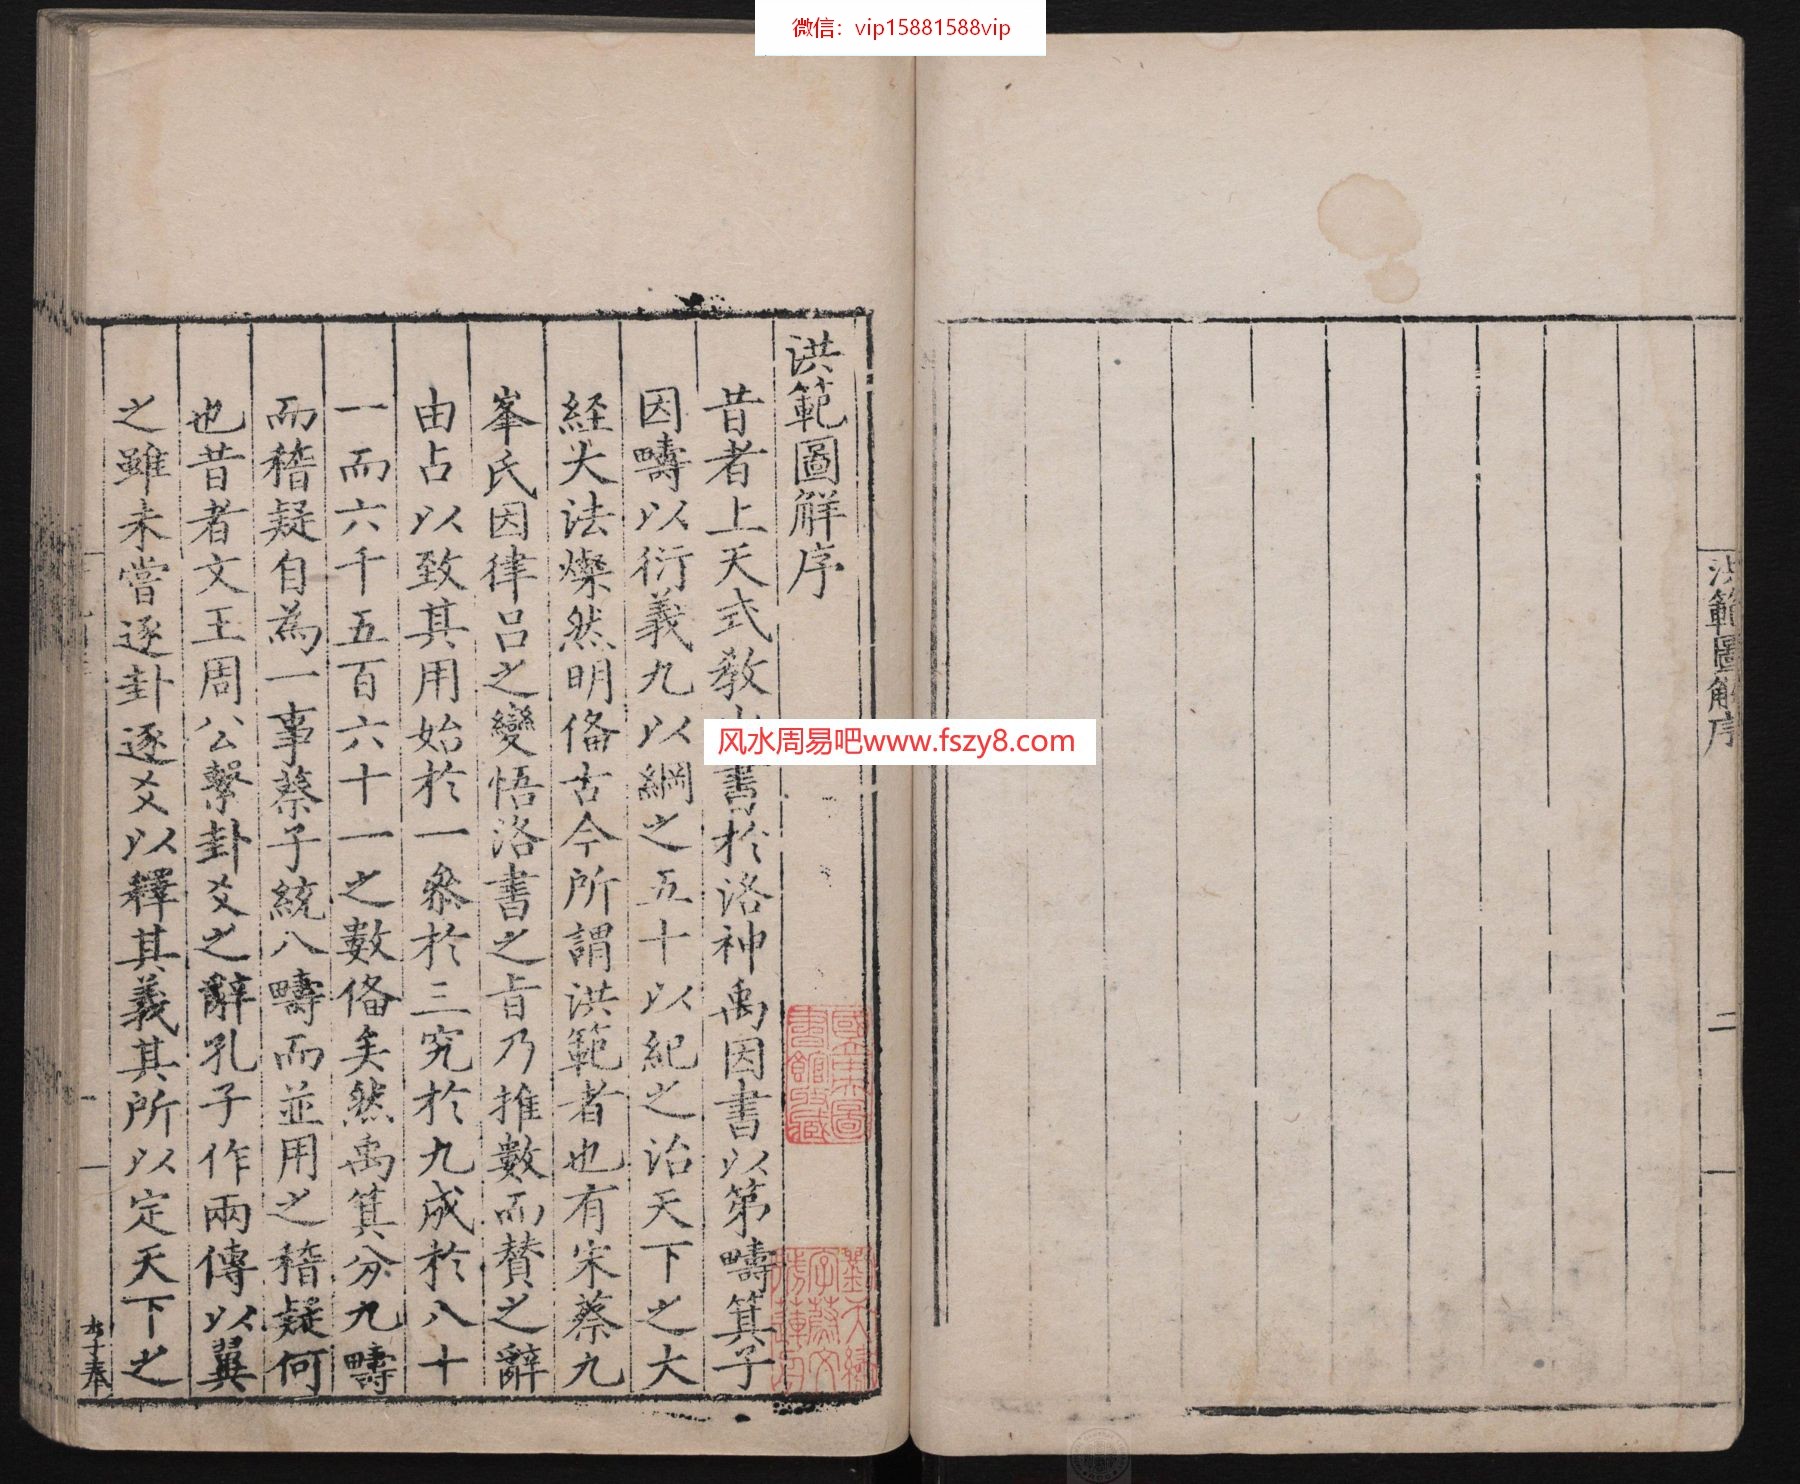 微信：vip15881588vip
洪範圖解序
二
洪範圖解序
昔者上天式教書於洛神禹因書以第疇箕子
因疇以衍義九以綱之五十以紀之治天下之大
経大法燦然明俻古今所謂洪範者也有宋蔡九
峯氏因律吕之變悟洛書之旨乃推數而賛之辭
由占以致其用始於一叅於三究於九成於八十
一而六千五百六十一之數俻矣然禹箕分九疇
而稽疑自為一事蔡子統八疇而並用之稽疑何
也昔者文王周公繫卦爻之辭孔子作兩傳以翼
之雖未嘗逐卦逐爻以釋其義其所以定天下之
風水周易吧www.fszy8.com
國立北平圖
書館收藏